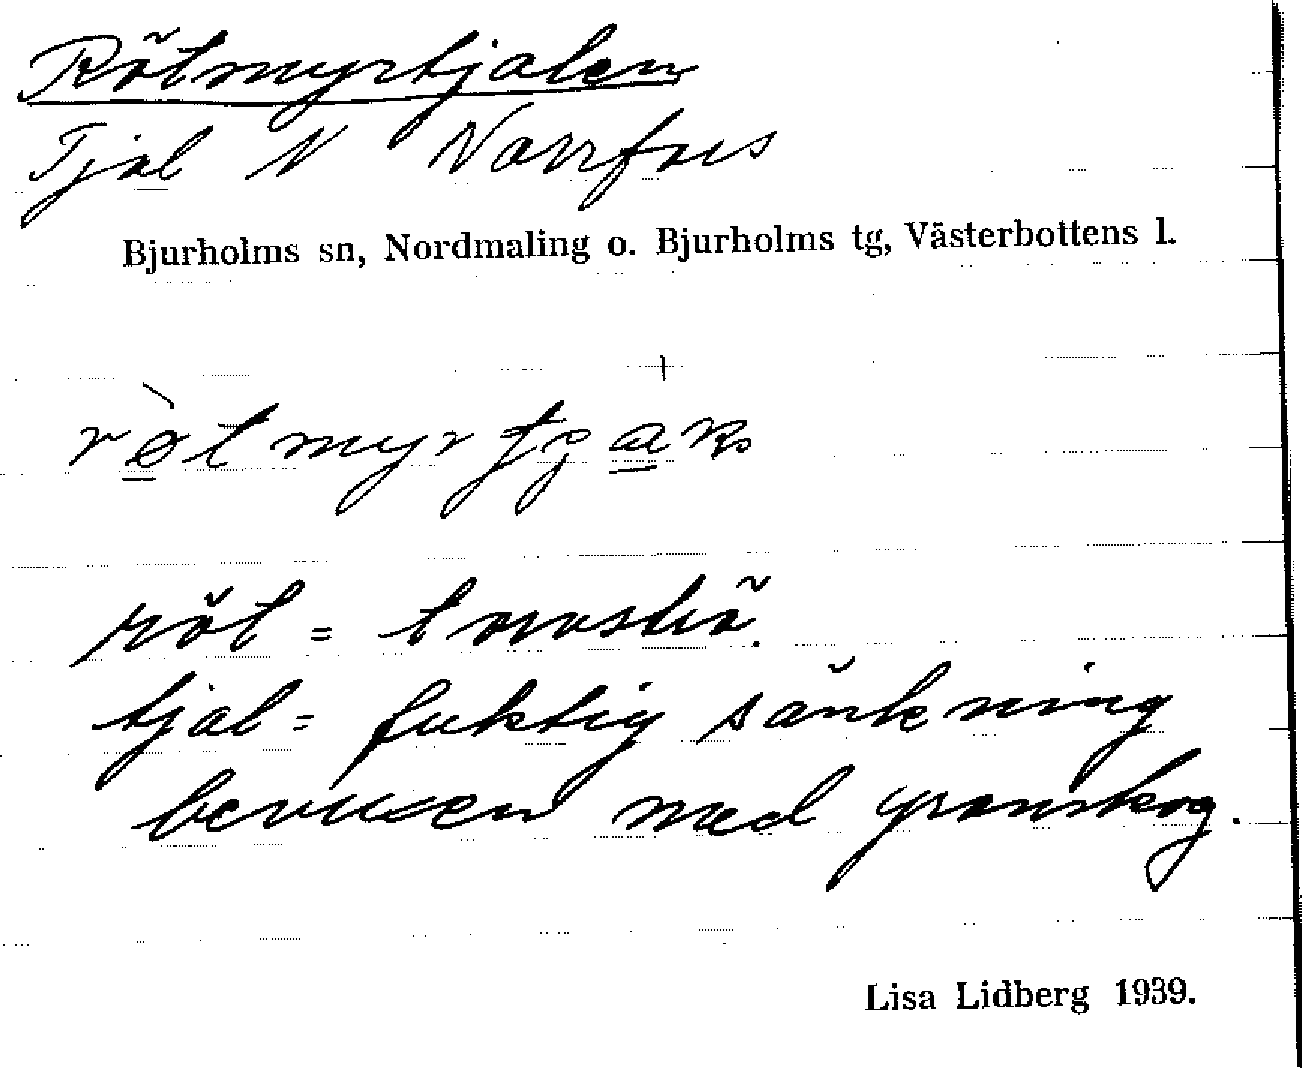 Rötmyrtjalen
Tjal N Norrfors
Bjurholms sn, Nordmaling o. Bjurholms tg, Västerbottens l.
röt = torrstrå.
tjal = fuktig sänkning
bevuxen med granskog.
Lisa Lidberg 1939.